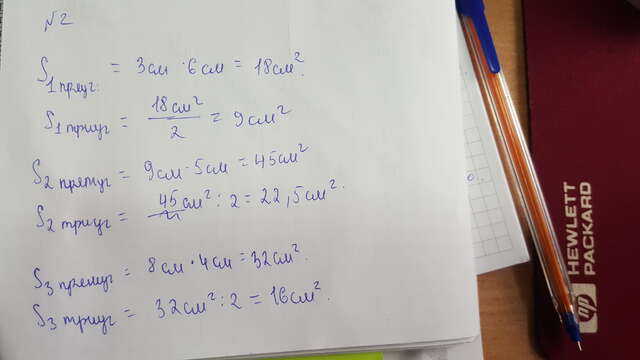 №2
S₁ прямуг. = 3см · 6см = 18см².
S₁ триуг = 18см²/2 = 9см²
S₂ прямуг = 9см · 5см = 45см²
S₂ триуг = 45см² : 2 = 22,5см².
S₃ прямуг = 8см · 4см = 32см².
S₃ триуг = 32см² : 2 = 16см².
HEWLETT
PACKARD
hp